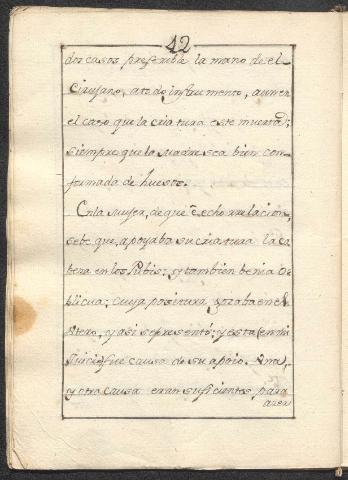 42
dos casos preferible la mano del
Cirujano, a todo instrumento, aun en
el caso que la criatura este muerta;
siempre que la Madre sea bien con-
formada de huesos.
En la Mujer, de que è echo rrelacion,
sebe que apoyaba su criatura la ca
beza en los Pubis; y tambien benia O
blicua; cuya positura gozaba en el
Utero, y asi se presentó; y esta (en mi
Juicio) fue causa de su apoio. Una,
y otra causa eran suficientes para
azer